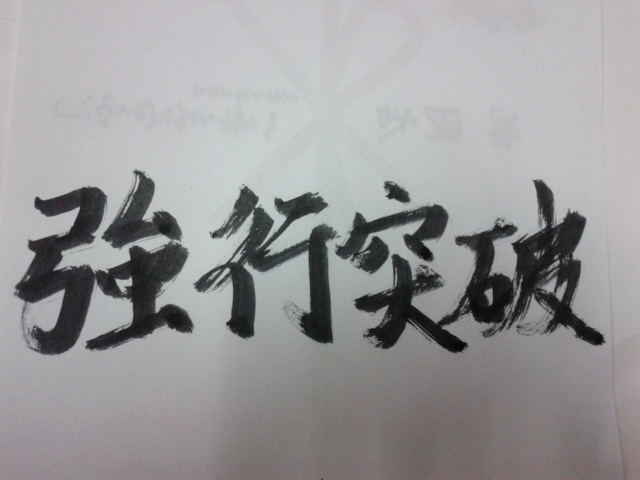 強行突破